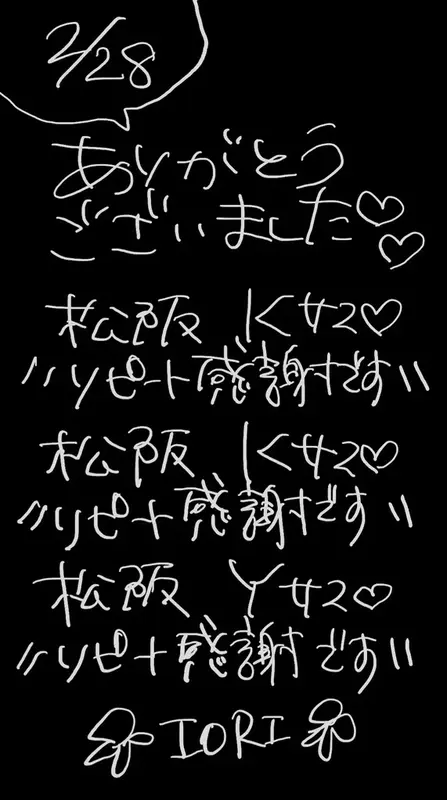 2/28
ありがとう
ございました♡♡
松阪 Kサマ♡
"リピート感謝です"
松阪 Kサマ♡
"リピート感謝です"
松阪 Yサマ♡
"リピート感謝です"
IORI